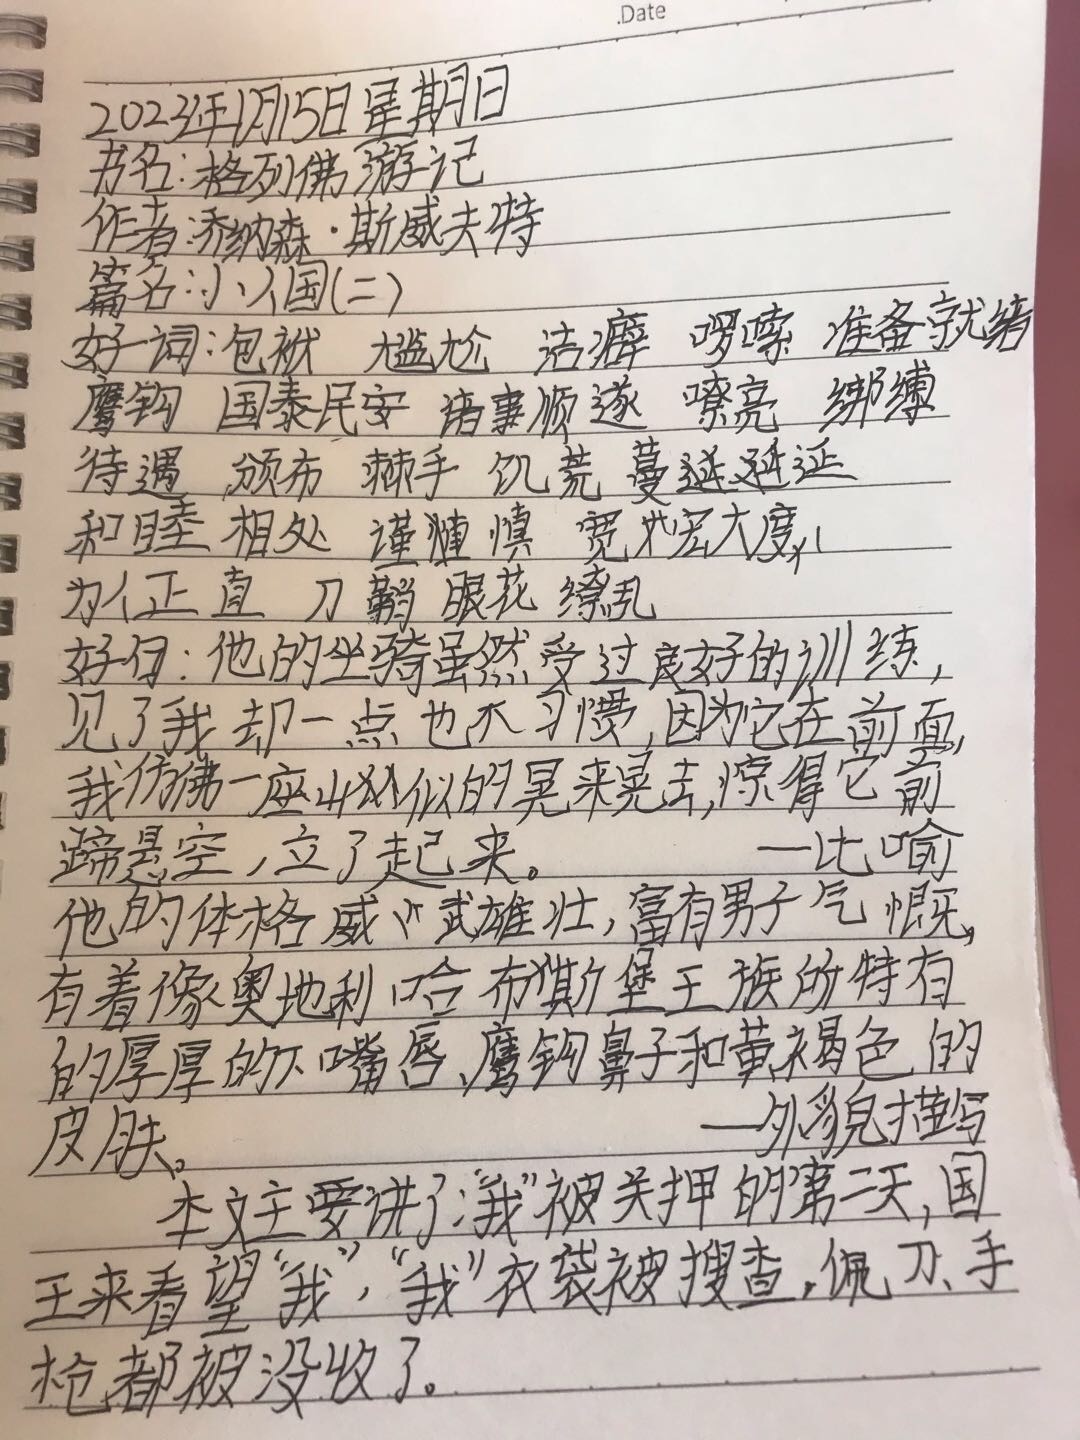 .Date
2023年1月15日 星期日
书名:格列佛游记
作者:乔纳森·斯威夫特
篇名:小人国(二)
好词:包袱 尴尬 洁癖 啰嗦 准备就绪
鹰钩 国泰民安 诸事顺遂 嘹亮 绑缚
待遇 颁布 棘手 饥荒 蔓延
和睦相处 谨慎 宽宏大度
为人正直 刀鞘 眼花缭乱
好句:他的坐骑虽然受过良好的训练,
见了我却一点也不习惯,因为它在前面,
我仿佛一座山似的晃来晃去,惊得它前
蹄悬空,立了起来。 —比喻
他的体格威武雄壮,富有男子气慨,
有着像奥地利哈布斯堡王族所特有
的厚厚的下嘴唇、鹰钩鼻子和黄褐色的
皮肤。 —外貌描写
本文主要讲了“我”被关押的第二天,国
王来看望“我”,“我”衣袋被搜查,佩刀、手
枪都被没收了。